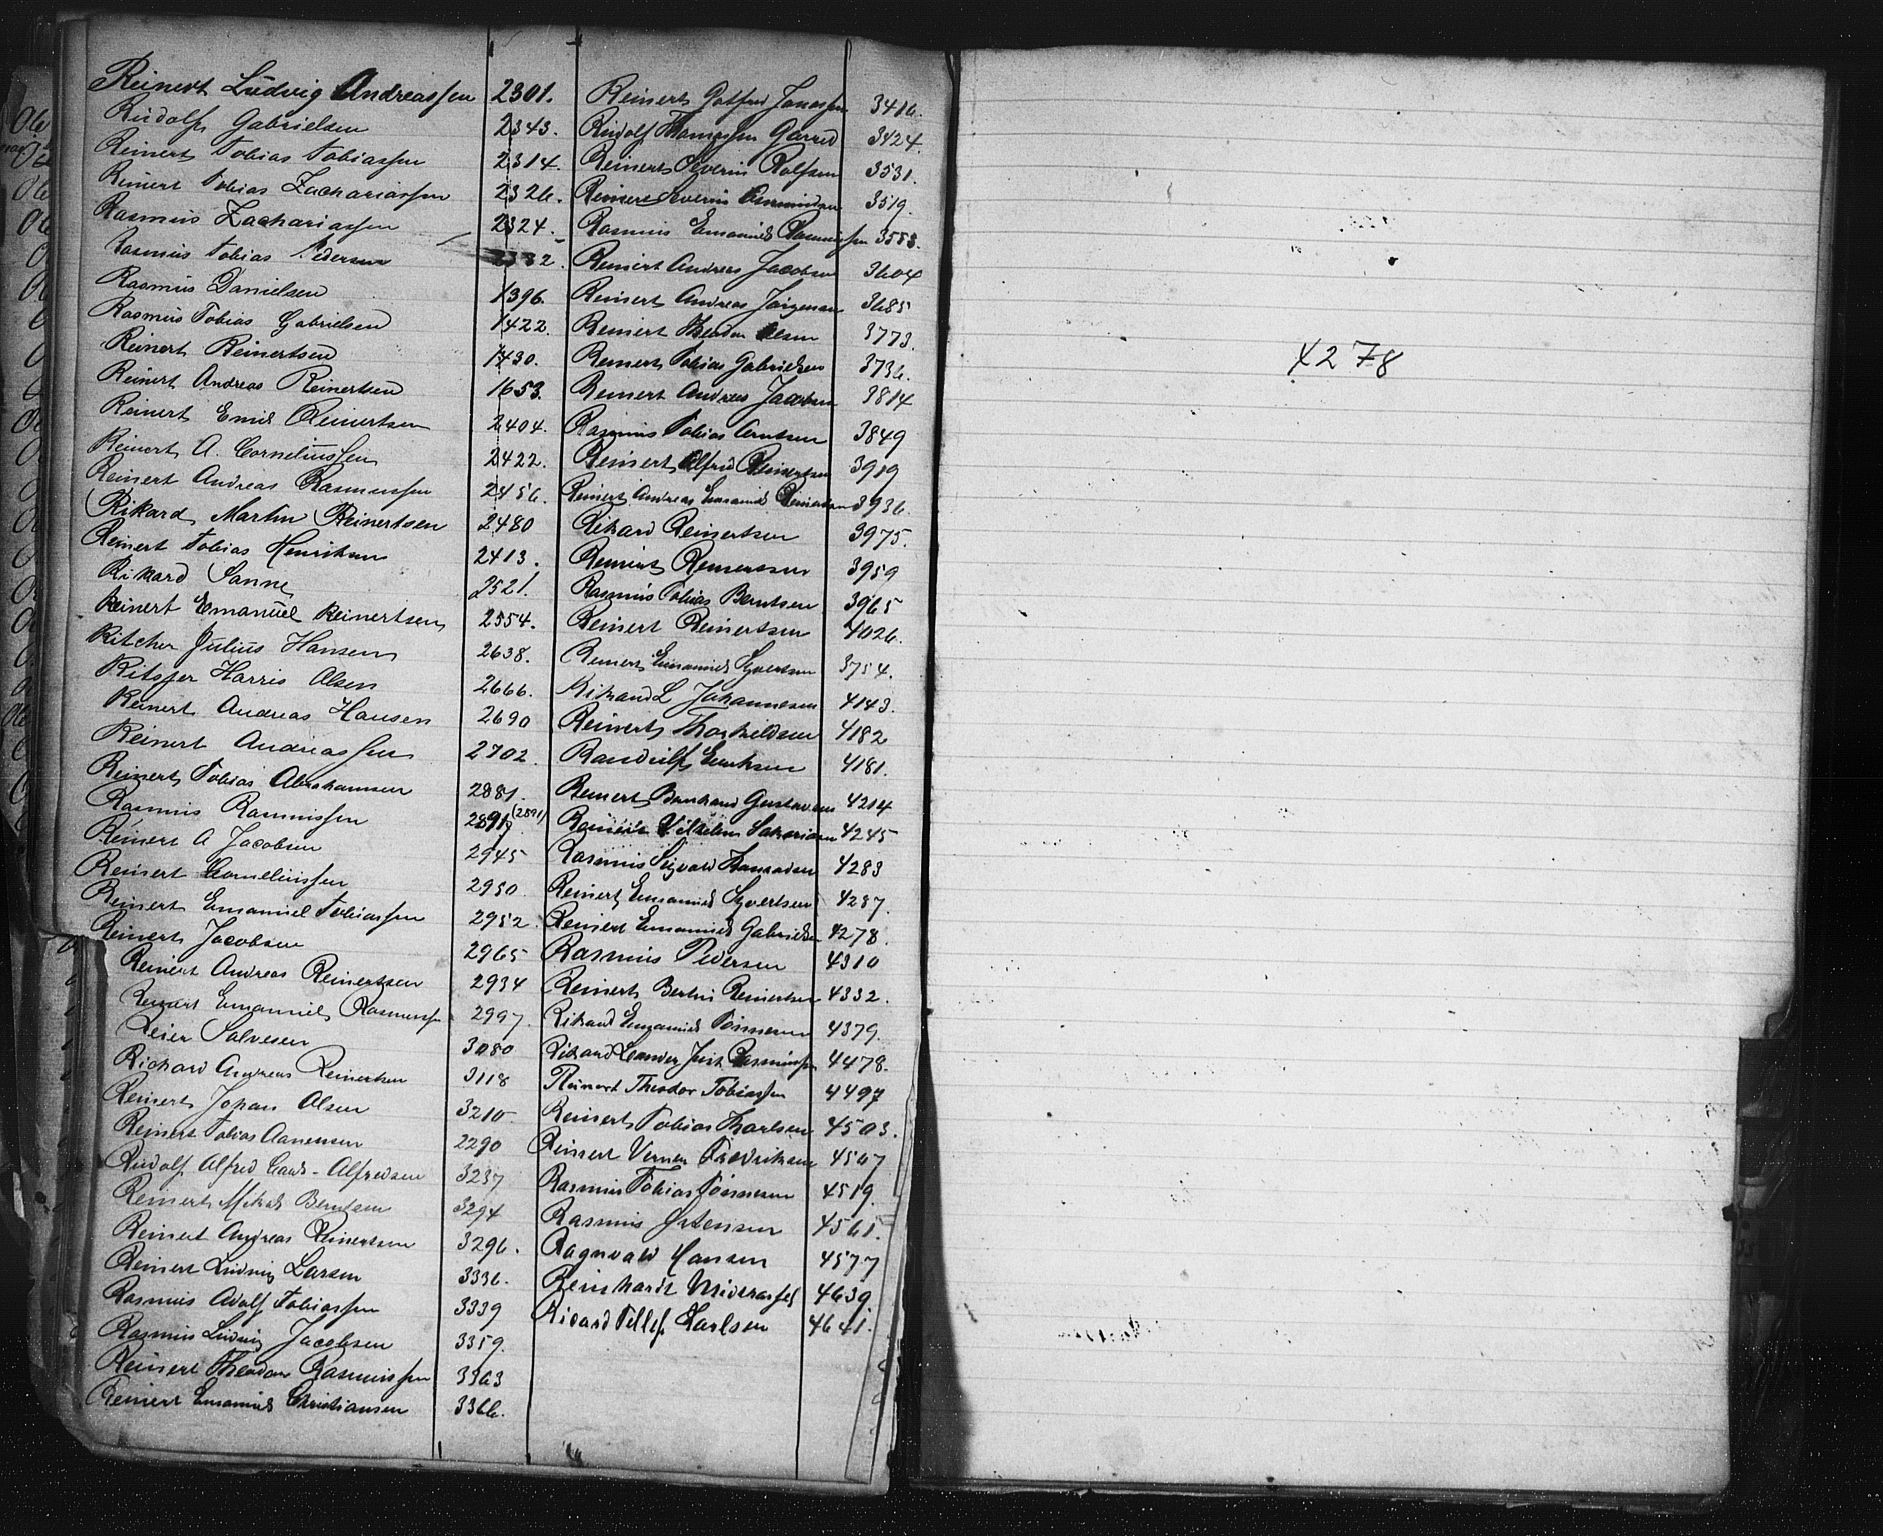 Reinert Ludvig Andreassen 2301.
Rudolf Gabrielsen 2343.
Reinert Tobias Tobiassen 2314.
Reinert Tobias Zachariassen 2326.
Rasmus Zachariassen 2324.
Rasmus Tobias Pedersen 2332.
Rasmus Danielsen 1396.
Rasmus Tobias Gabrielsen 1422.
Reinert Reinertsen 1430.
Reinert Andreas Reinertsen 1653.
Reinert Emil Reinertsen 2404.
Reinert A. Corneliussen 2422.
Reinert Andreas Rasmussen 2456.
Rikard Martin Reinertsen 2480
Reinert Tobias Henriksen 2413.
Rikard Sanne 2521.
Reinert Emanuel Reinertsen 2554.
Ritcher Julius Hansen 2638.
Ritsjer Harris Olsen 2666.
Reinert Andreas Hansen 2690
Reinert Andreassen 2702.
Reinert Tobias Abrahamsen 2881.
Rasmus Rasmussen 2891 (2891)
Reinert A Jacobsen 2945
Reinert Corneliussen 2950
Reinert Emanuel Tobiassen 2952.
Reinert Jacobsen 2965
Reinert Andreas Reinertsen 2934
Reinert Emanuel Rasmussen 2997.
Reier Salvesen 3080
Richard Andreas Reinertsen 3118
Reinert Johan Olsen 3210
Reinert Tobias Aanensen 2290
Rudolf Alfred Alfredsen 3237
Reinert Mikal Berntsen 3294
Reinert Andreas Reinertsen 3296.
Reinert Ludvig Larsen 3336.
Rasmus Adolf Tobiassen 3339
Rasmus Ludvig Jacobsen 3359.
Reinert Theodor Rasmussen 3363
Reinert Emanuel Christiansen 3366.
Reinert Gotfred Jonassen 3416.
Rudolf Thomassen 3424.
Reinert Severin Rolfsen 3531.
Reinert Severin Osmundsen 3519.
Rasmus Emanuel Rasmussen 3553.
Reinert Andreas Jacobsen 3604
Reinert Andreas Jørgensen 3685
Reinert Theodor Olsen 3773.
Reinert Tobias Gabrielsen 3736.
Reinert Andreas Jacobsen 3814
Rasmus Tobias Arntsen 3849
Reinert Alfred Reinertsen 3919
Reinert Andreas Emanuel Reinertsen 3936.
Rikard Reinertsen 3975.
Reinert Reinertsen 3959
Rasmus Tobias Berntsen 3965
Reinert Reinertsen 4026.
Reinert Emanuel Syvertsen 3754.
Rikard L Johannesen 4143.
Reinert Thorkildsen 4182
Randulf Eriksen 4181.
Reinert Bernhard Gustavsen 4214
Vilhelm Sakariasen 4245
Rasmus Sigvald 4283
Reinert Emanuel Syvertsen 4287.
Reinert Emanuel Gabrielsen 4278.
Rasmus Pedersen 4310
Reinert Bertin Reinertsen 4332.
Rikard Emanuel Tønnesen 4379.
Rikard Leander Just Rasmussen 4478.
Reinert Theodor Tobiassen 4497
Reinert Tobias Karlsen 4503.
Reinert Verner Fredriksen 4507
Rasmus Tobias Tønnesen 4519.
Rasmus Ostensen 4561.
Ragnvald Hansen 4577
Reinhardt 4639.
Ricard Tellef Karlsen 4641.
4278